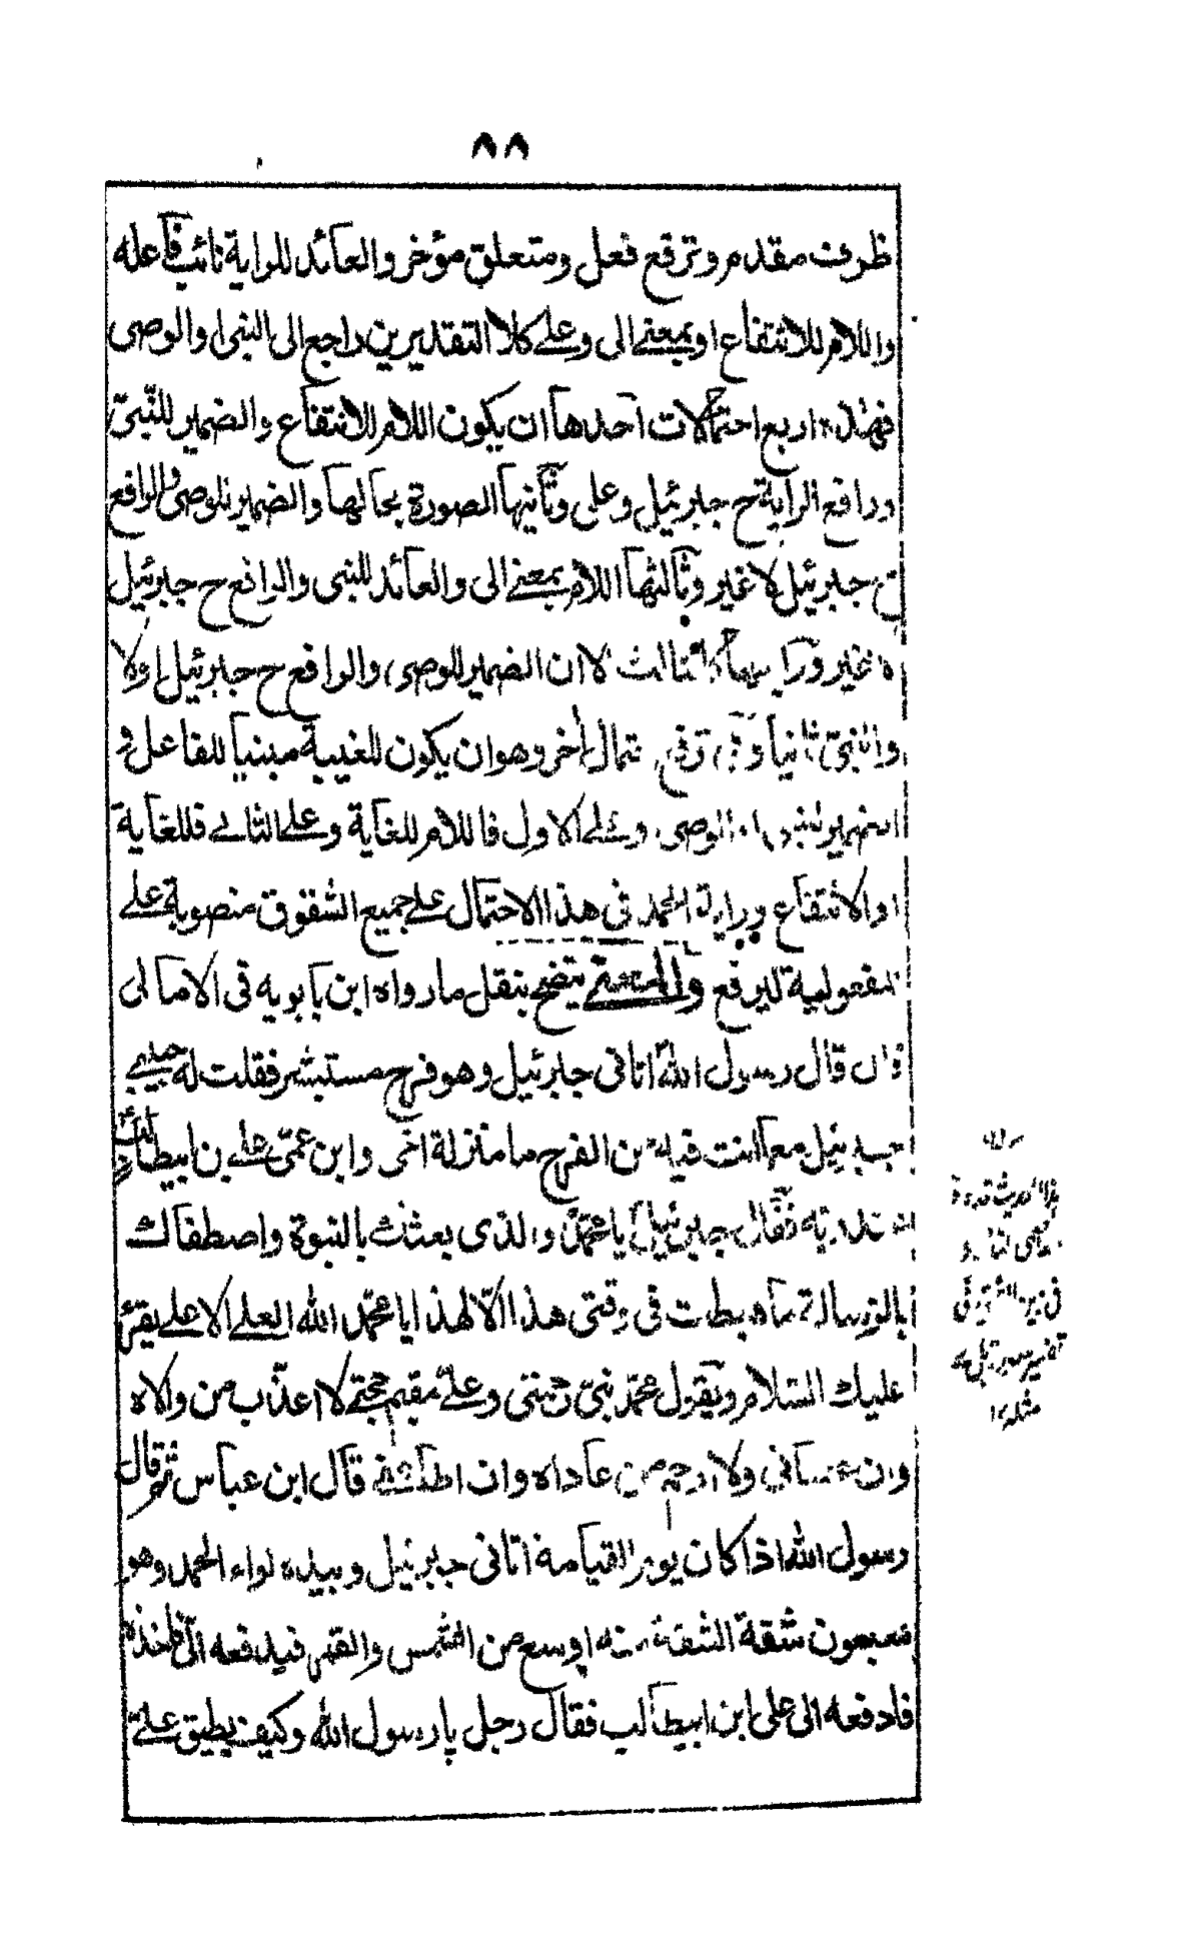 ٨٨
ظرف مقدم وترفع فعل ومتعلق مؤخر والعائد للراية نائب فاعله
واللام للانتفاع او بمعنے الى وعلے كلا التقديرين راجع الى النبى او الوصى
فهذه اربع احتمالات احدها ان يكون اللام للانتفاع والضمير للنّبىّ
ورافع الراية ح جبرئيل وعلى وثانيها الصورة بحالها والضمير للوصى والرافع
ح جبرئيل لا غير وثالثها اللام بمعنے الى والعائد للنبى والرافع ح جبرئيل
لا غير ورابعها كالثالث الا ان الضمير للوصى والرافع ح جبرئيل اولا
والنبىّ ثانيا وفى ترفع احتمال اخر وهو ان يكون للغيبة مبنيا للفاعل و
الضمير للنبى او الوصى وعلى الاول فاللام للغاية وعلے الثانے فللغاية
او الانتفاع وراية الحمد فى هذا الاحتمال علے جميع الشقوق منصوبة علے
المفعولية لترفع والمعنے يتضح بنقل ما رواه ابن بابويه فى الامالى
قال قال رسول الله اتانى جبرئيل وهو فرح مستبشر فقلت له حبيبے
جبرئيل مع ما انت فيه من الفرح ما منزلة اخى وابن عمّى علے بن ابيطالب
عند ربه فقال جبرئيل يا محمّد والذى بعثك بالنبوة واصطفاك
بالرسالة ما هبطت فى وقتى هذا الّا لهذا يا محمّد الله العلے الاعلے يقرئ
عليك السّلام ويقول محمّد نبىّ رحمتى وعلے مقيم حجتے لا اعذّب من والاه
وان عصانى ولا ارحم من عاداه وان اطاعنے قال ابن عباس ثم قال
رسول الله اذا كان يوم القيامة اتانى جبرئيل وبيده لواء الحمد وهو
سبعون شقة الشقة منه اوسع من الشمس والقمر فيدفعه الىّ فاخذه
فادفعه الى على ابن ابيطالب فقال رجل يا رسول الله وكيف يطيق علے